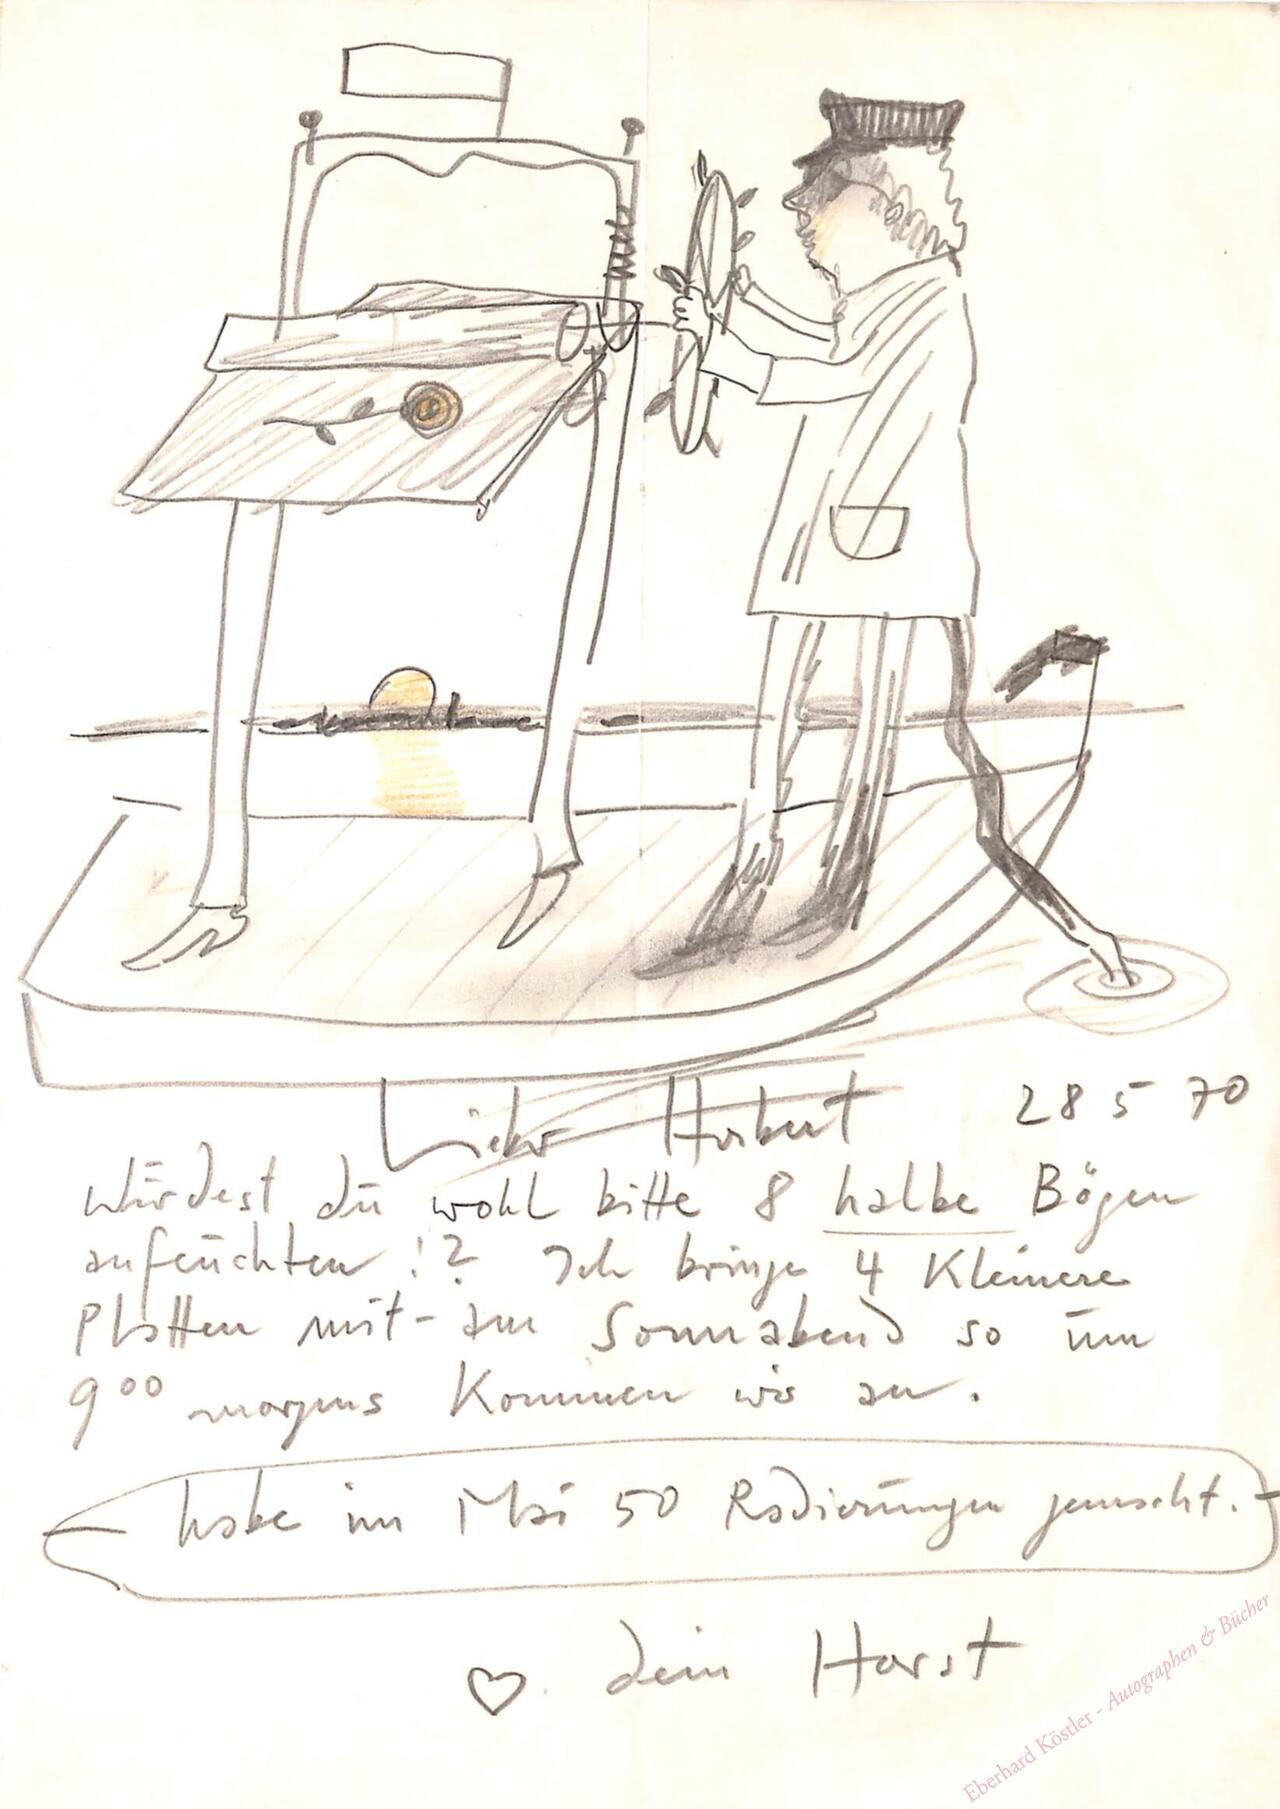 Lieber Herbert 28 5 70
Würdest du wohl bitte 8 halbe Bögen
anfeuchten !? Ich bringe 4 kleinere
Platten mit - am Sonnabend so um
9⁰⁰ morgens kommen wir an.
habe im Mai 50 Radierungen gemacht.
♡ dein Horst
Eberhard Köstler - Autographen & Bücher